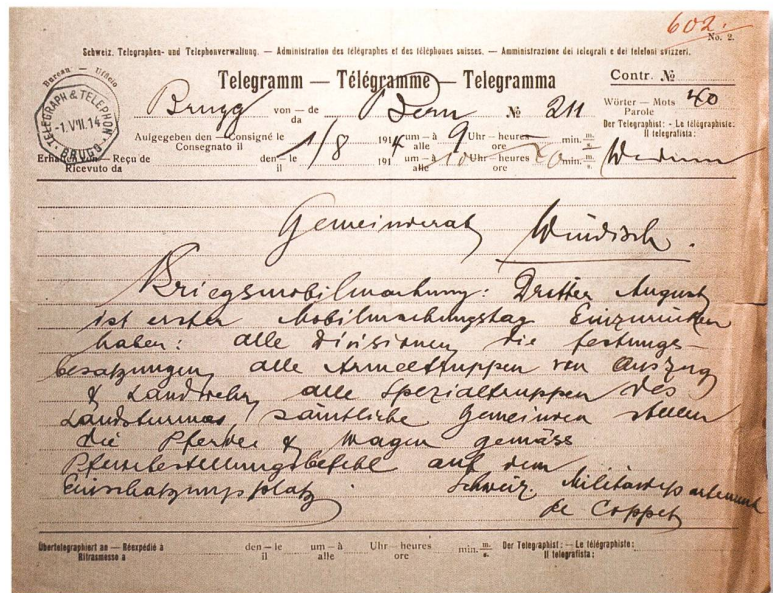 602.
No. 2.
Schweiz. Telegraphen- und Telephonverwaltung. — Administration des télégraphes et des téléphones suisses. — Amministrazione dei telegrafi e dei telefoni svizzeri.
Bureau — Ufficio
Telegramm — Télégramme — Telegramma
Contr. №
TELEGRAPH & TELEPHON
-1.VIII.14
BRUGG
Brugg von — de da Bern № 211
Wörter — Mots Parole 40
Aufgegeben den — Consigné le Consegnato il 1/8 1914 um — à alle 9 Uhr — heures ore min. m. s.
Der Telegraphist: - Le télégraphiste: Il telegrafista:
Erhalten von — Reçu de Ricevuto da den — le il 191 um — à alle 10 Uhr — heures ore 20 min. m. s.
Gemeinderat Windisch.
Kriegsmobilmachung: Dritter August
ist erster Mobilmachungstag Einzurücken
haben: alle Divisionen die festungs-
besatzungen, alle Armeetruppen von Auszug
& Landwehr, alle Spezialtruppen des
Landsturmes sämtliche Gemeinden stellen
die Pferde & Wagen gemäss
Pferdestellungsbefehl auf dem
Einschatzungsplatz.
Schweiz. Militärdepartement
de Coppet
Übertelegraphiert an — Réexpédié à Ritrasmesso a den — le il um — à alle Uhr — heures ore min. m. s. Der Telegraphist: — Le télégraphiste: Il telegrafista: